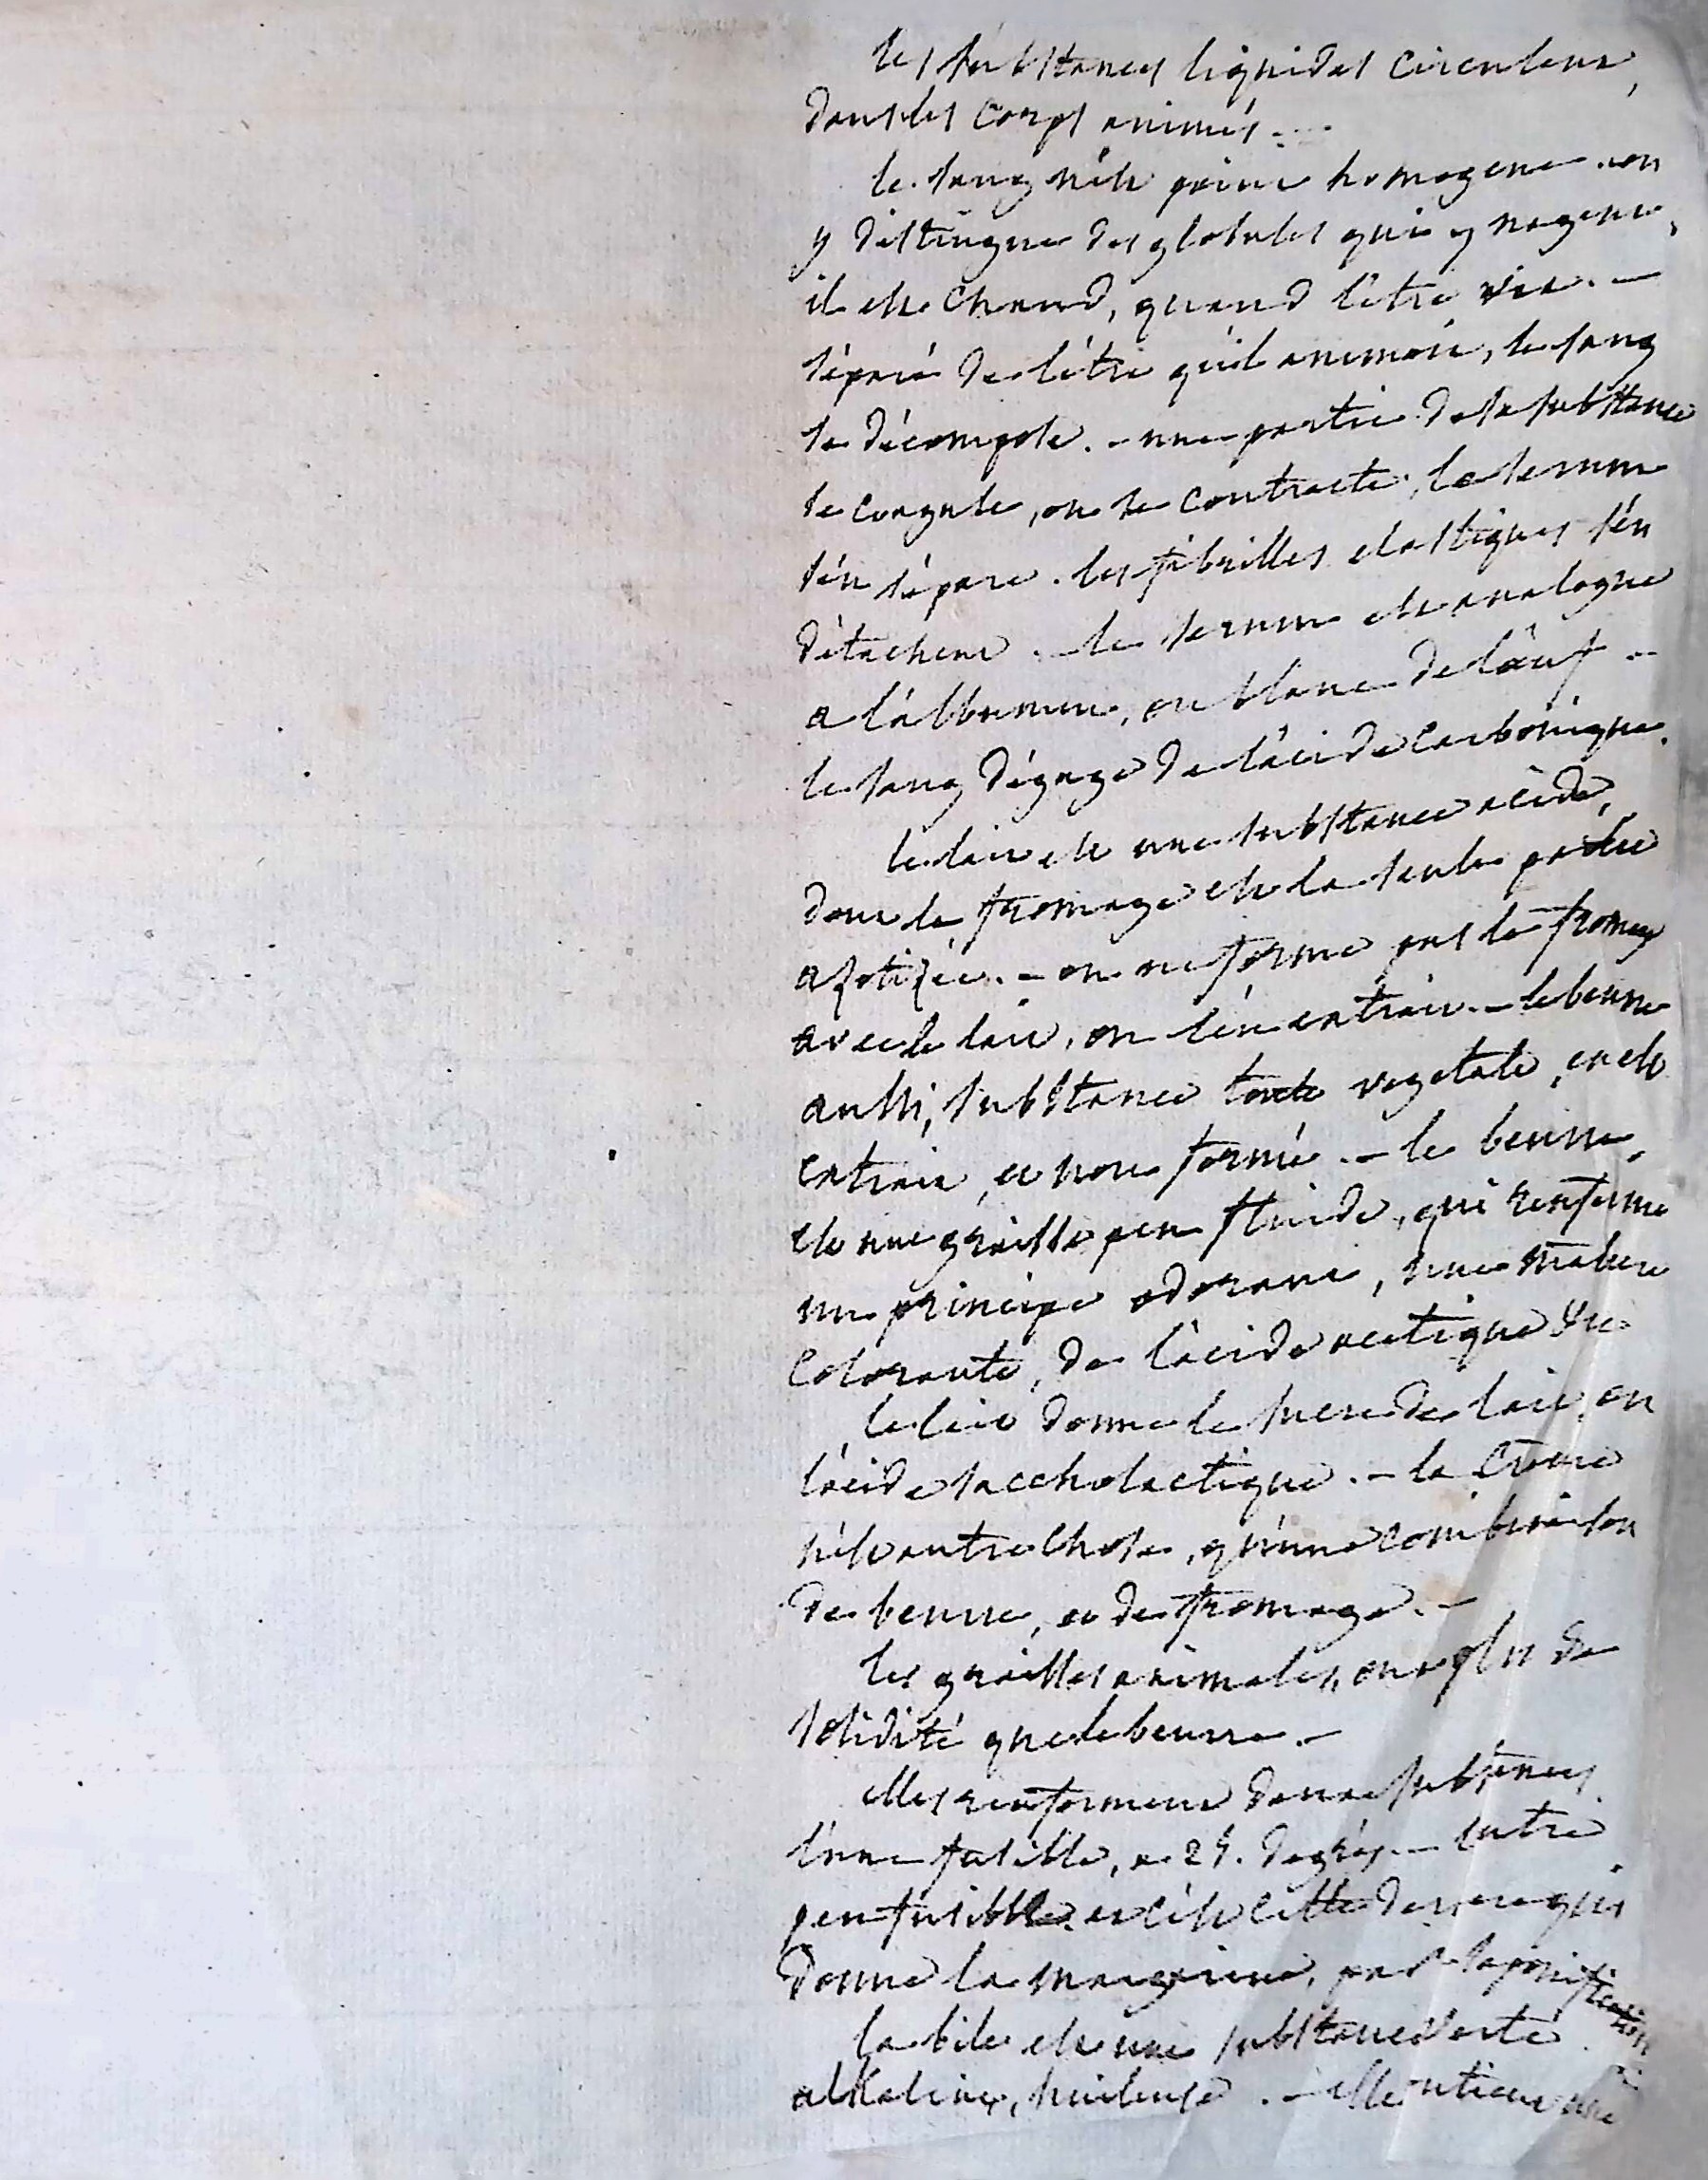 les substances liquides circulent,
dans les corps animés. –
le sang n'est point homogene. on
y distingue des globules qui y nagent,
il est chaud, quand l'être vit. –
séparé de l'être qu'il animoit, le sang
se décompose. – une partie de sa substance
se coagule, ou se contracte, le serum
s'en sépare. les fibrilles elastiques s'en
détachent. – le serum est analogue
a l'albumine, ou blanc de l'œuf –
le sang dégage de l'acide carbonique.
le lait est une substance acide,
dont le fromage est la seule partie
azotizée. – on ne forme pas le fromage
avec le lait, on l'en extrait. – le beurre
aussi, substance toute vegetale, en est
extrait, et non formé. – le beurre,
est une graisse peu fluide, qui renferme
un principe odorant, une matiere
colorante, de l'acide acetique &c.
le lait donne le sucre de lait, ou
l'acide saccholactique. – la crême
n'est autre chose, qu'une combinaison
de beurre, et de fromage. –
les graisses animales, ont plus de
solidité que le beurre. –
elles renferment deux substances
l'une fusible, a 25. degrés. – l'autre
peu fusible et c'est cette derniere qui
donne la margarine, par saponification
la bile est une substance verte
alkaline, huileuse. – elle contient une